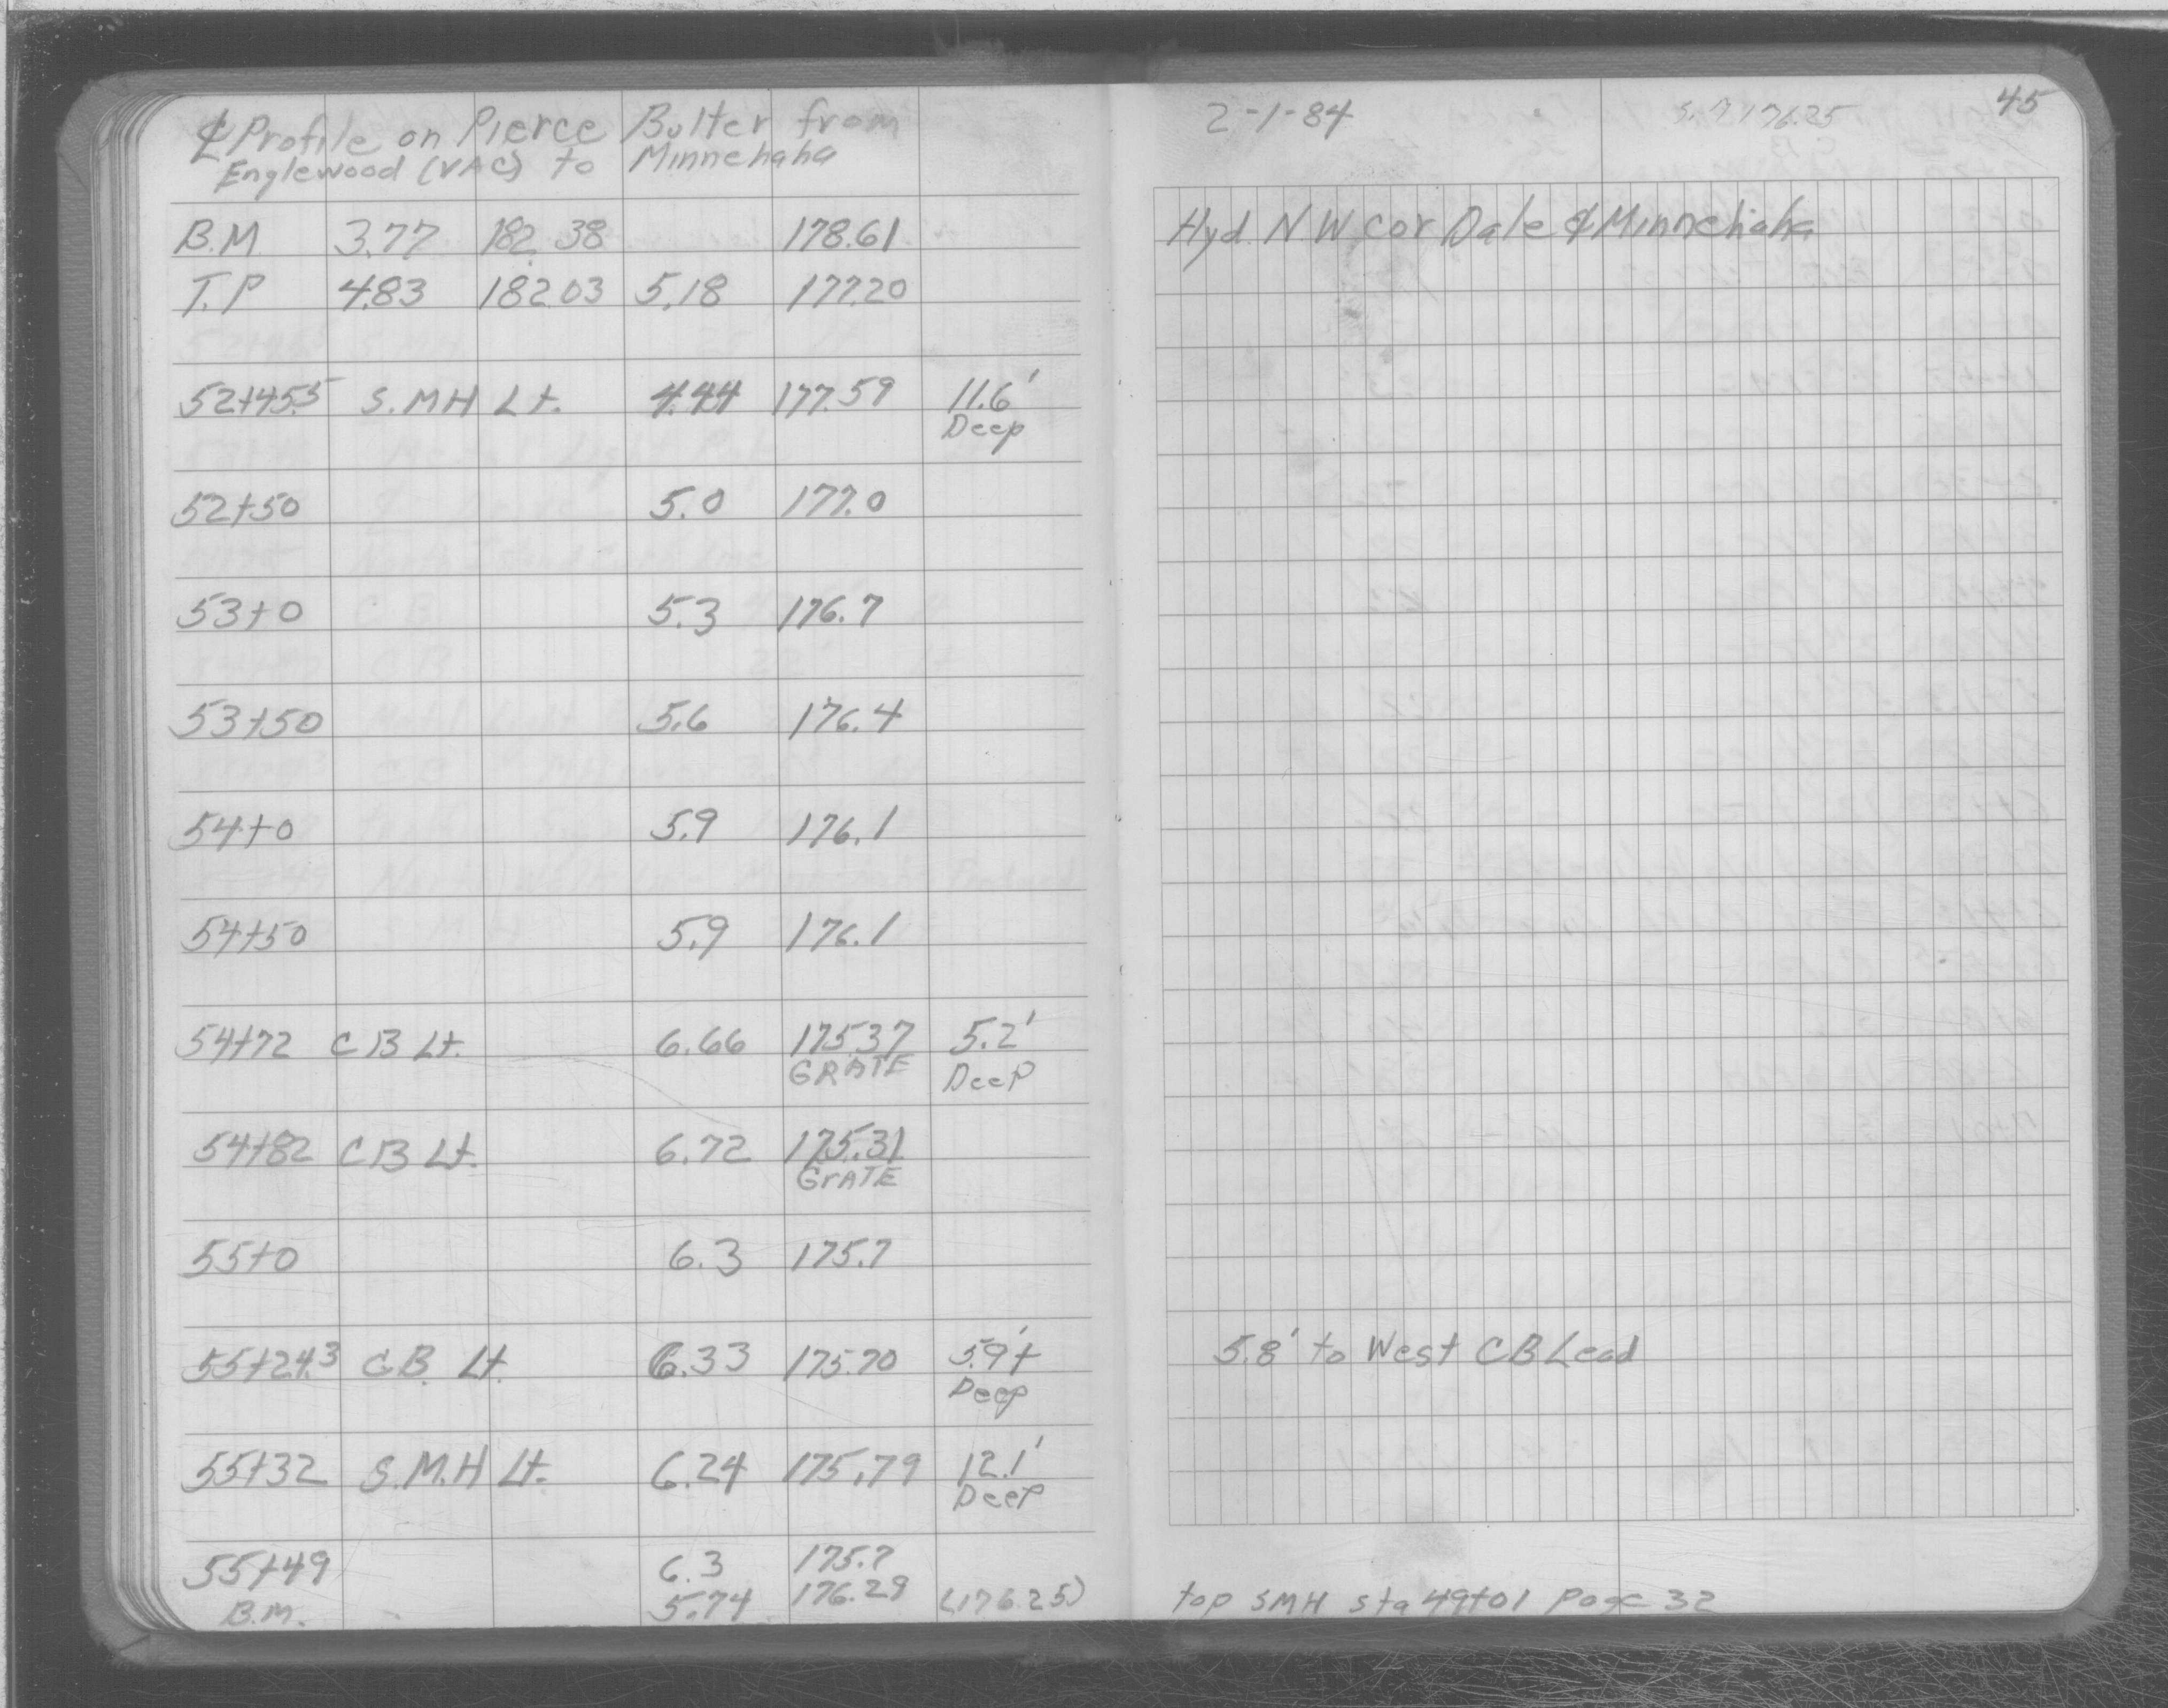 ℄ Profile on Pierce Bulter from
Englewood (VAC) to Minnehaha
B.M 3.77 182.38 178.61
T.P 4.83 182.03 5.18 177.20
52+45.5 S.MH Lt. 4.44 177.59 11.6'
Deep
52+50 5.0 177.0
53+0 5.3 176.7
53+50 5.6 176.4
54+0 5.9 176.1
54+50 5.9 176.1
54+72 CB Lt. 6.66 175.37 5.2'
GRATE DeeP
54+82 CB Lt. 6.72 175.31
GrATE
55+0 6.3 175.7
55+24.3 C.B. Lt. 6.33 175.70 5.9'+
Deep
55+32 S.M.H Lt. 6.24 175.79 12.1'
DeeP
55+49 6.3 175.7
B.M. 5.74 176.29 (176.25)
2-1-84 45
Hyd. N W cor Dale & Minnehaha
5.8' to West CB Lead
top SMH sta 49+01 Page 32